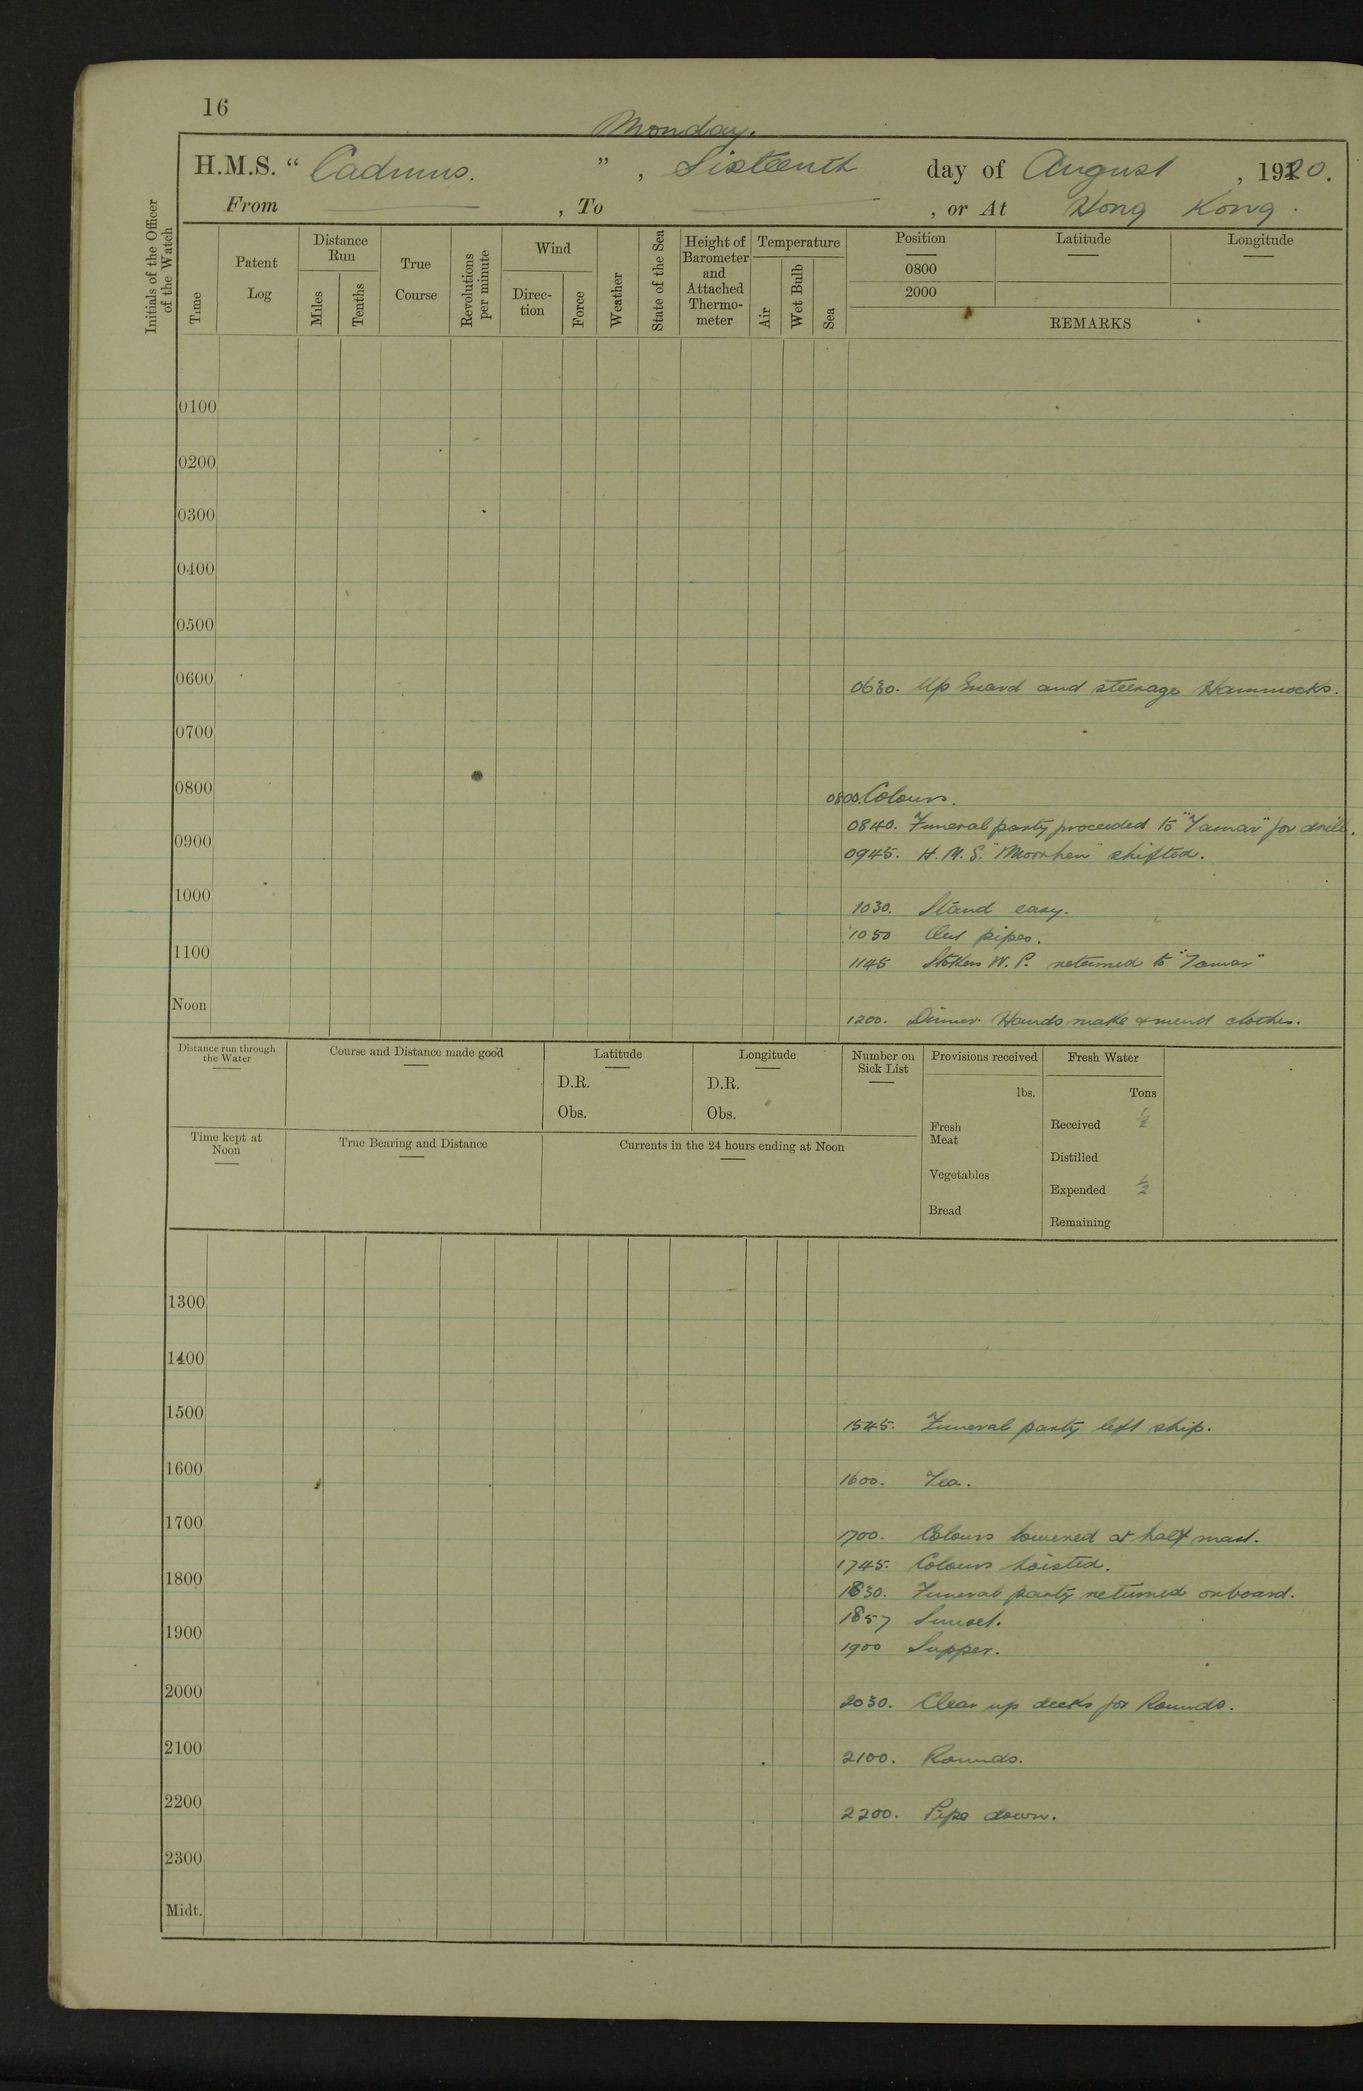 16
Monday.
H.M.S. “ Cadmus. ” , Sixteenth day of August , 1920.
From , To , or At Hong Kong.
Initials of the Officer of the Watch
Time
Patent Log
Distance Run
Miles
Tenths
True Course
Revolutions per minute
Wind
Direc-tion
Force
Weather
State of the Sea
Height of Barometer and Attached Thermo-meter
Temperature
Air
Wet Bulb
Sea
Position
Latitude
Longitude
0800
2000
REMARKS
0100
0200
0300
0400
0500
0600
0630. Up Guard and steerage Hammocks.
0700
0800
0800. Colours.
0840. Funeral party proceeded to "Tamar" for drill.
0900
0945. H.M.S. "Moorhen" shifted.
1000
1030. Stand easy.
1050 Out pipes.
1100
1145 Stokers W.P. returned to "Tamar"
Noon
1200. Dinner. Hands make & mend clothes.
Distance run through the Water
Course and Distance made good
Latitude
D.R.
Obs.
Longitude
D.R.
Obs.
Number on Sick List
Provisions received
lbs.
Fresh Meat
Vegetables
Bread
Fresh Water
Tons
Received ½
Distilled
Expended ½
Remaining
Time kept at Noon
True Bearing and Distance
Currents in the 24 hours ending at Noon
1300
1400
1500
1545. Funeral party left ship.
1600
1600. Tea.
1700
1700. Colours lowered at half mast.
1745. Colours hoisted.
1800
1830. Funeral party returned onboard.
1857 Sunset.
1900
1900 Supper.
2000
2030. Clear up decks for Rounds.
2100
2100. Rounds.
2200
2200. Pipe down.
2300
Midt.